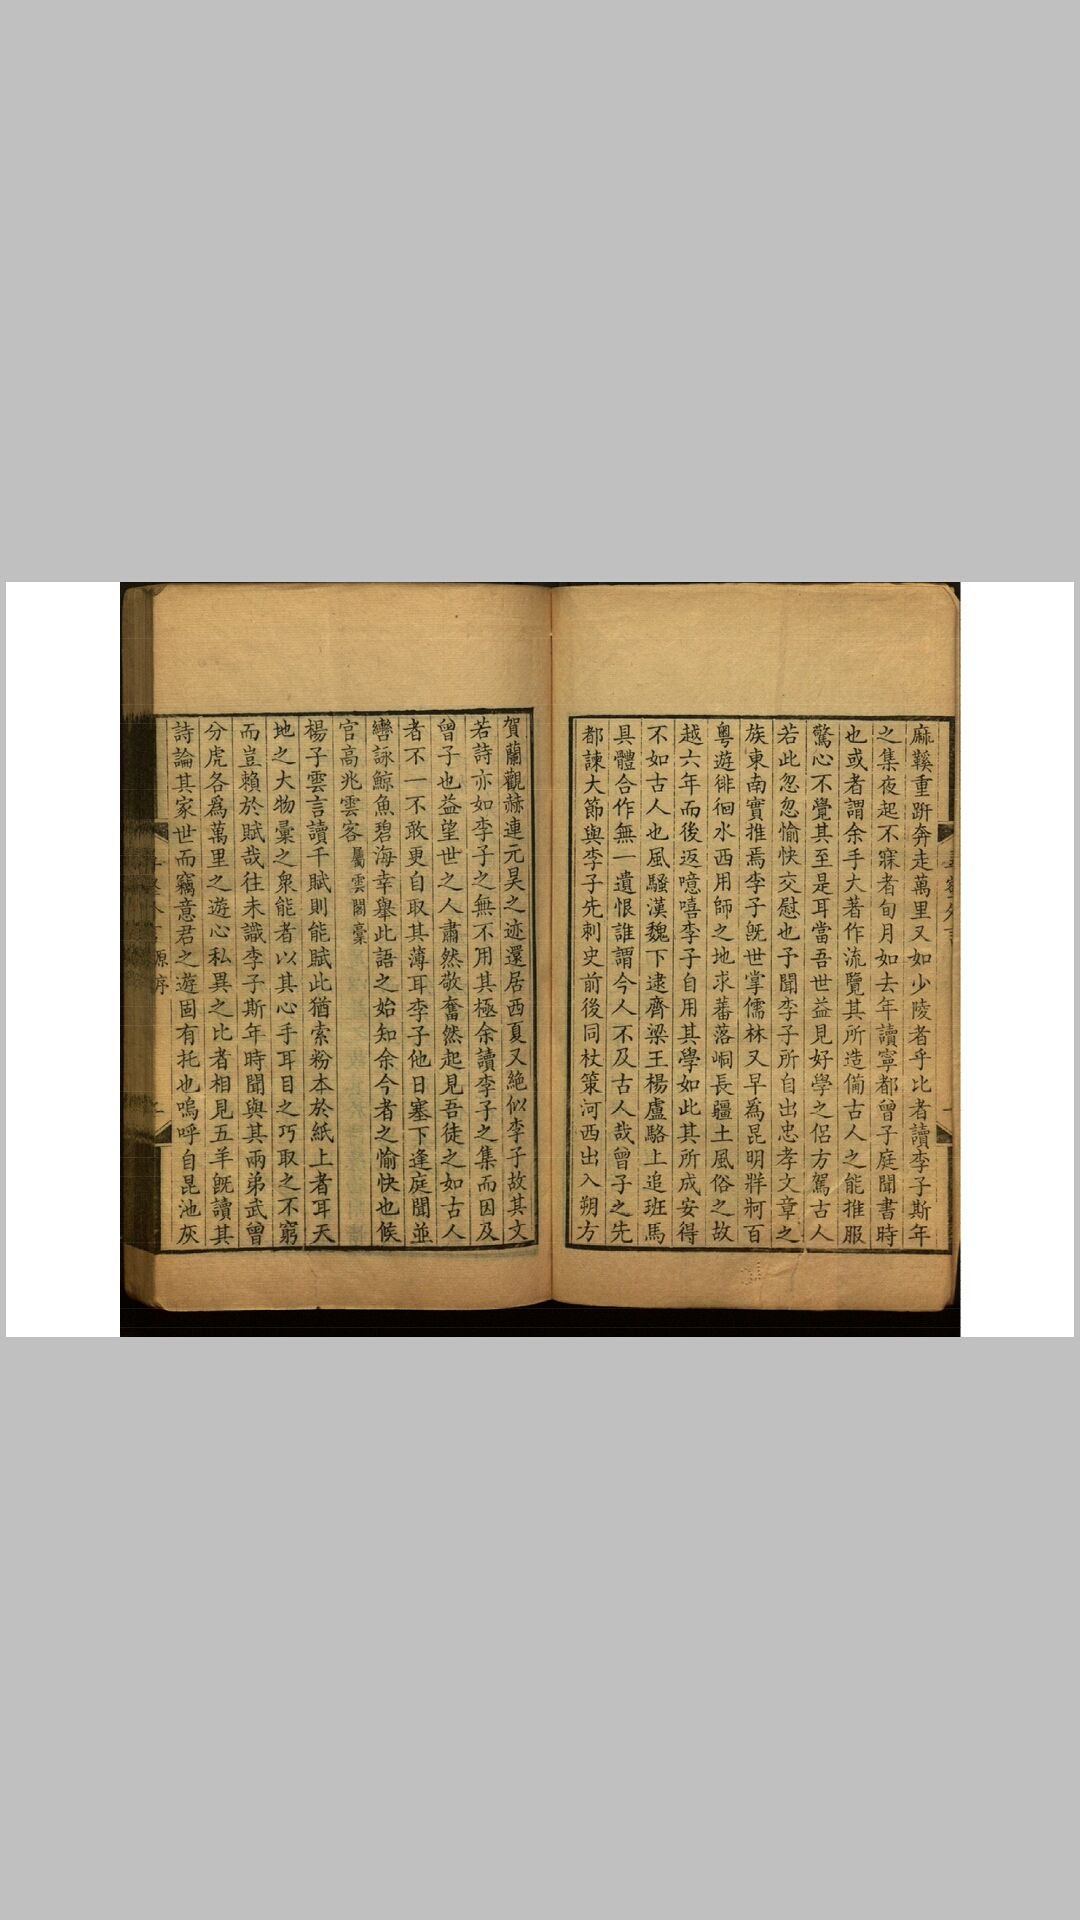 麻鞵重趼奔走萬里又如少陵者乎比者讀李子斯年
之集夜起不寐者旬月如去年讀寧都曾子庭聞書時
也或者謂余手大著作流覽其所造備古人之能推服
驚心不覺其至是耳當吾世益見好學之侶方駕古人
若此忽忽愉快交慰也予聞李子所自出忠孝文章之
族東南實推焉李子旣世掌儒林又早爲昆明牂牁百
粵遊徘徊水西用師之地求蕃落峒長疆土風俗之故
越六年而後返噫嘻李子自用其學如此其所成安得
不如古人也風騷漢魏下逮齊梁王楊盧駱上追班馬
具體合作無一遺恨誰謂今人不及古人哉曾子之先
都諫大節與李子先刺史前後同杖策河西出入朔方
賀蘭觀赫連元昊之迹還居西夏又絶似李子故其文
若詩亦如李子之無不用其極余讀李子之集而因及
曾子也益望世之人肅然敬奮然起見吾徒之如古人
者不一不敢更自取其薄耳李子他日塞下逢庭聞並
轡詠鯨魚碧海幸舉此語之始知余今者之愉快也候
官高兆雲客屬雲閣藁
楊子雲言讀千賦則能賦此猶索粉本於紙上者耳天
地之大物彙之衆能者以其心手耳目之巧取之不窮
而豈賴於賦哉往未識李子斯年時聞與其兩弟武曾
分虎各爲萬里之遊心私異之比者相見五羊旣讀其
詩論其家世而竊意君之遊固有托也嗚呼自昆池灰
原序
二